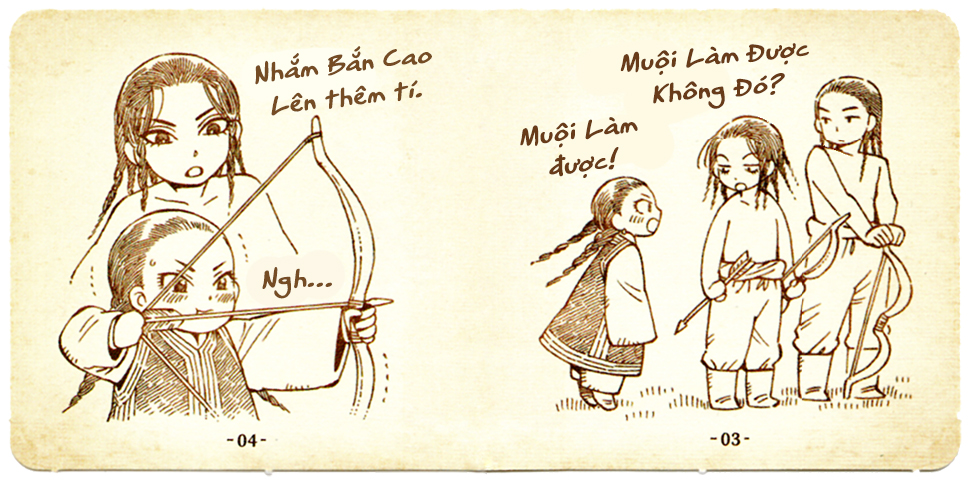 Muội Làm Được
Không Đó?
Muội Làm
được!
-03-
Nhắm Bắn Cao
Lên thêm tí.
Ngh...
-04-